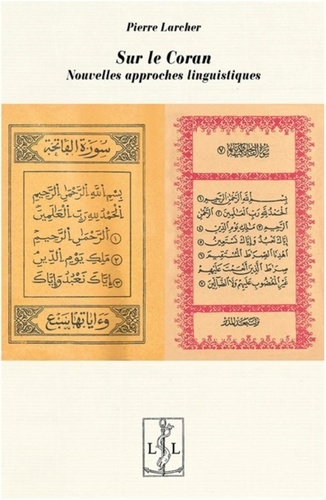 Pierre Larcher
Sur le Coran
Nouvelles approches linguistiques
سورة الفاتحة
بِسْمِ اللَّهِ الرَّحْمَٰنِ الرَّحِيمِ
الْحَمْدُ لِلَّهِ رَبِّ الْعَالَمِينَ
١ الرَّحْمَٰنِ الرَّحِيمِ
٢ مَلِكِ يَوْمِ الدِّينِ
٣ إِيَّاكَ نَعْبُدُ وَإِيَّاكَ
وءاياتها سبع
بِسْمِ اللَّهِ الرَّحْمَٰنِ الرَّحِيمِ ١
الْحَمْدُ لِلَّهِ رَبِّ الْعَالَمِينَ ٢ الرَّحْمَٰنِ
الرَّحِيمِ ٣ مَلِكِ يَوْمِ الدِّينِ ٤
إِيَّاكَ نَعْبُدُ وَإِيَّاكَ نَسْتَعِينُ ٥
اهْدِنَا الصِّرَاطَ الْمُسْتَقِيمَ ٦
صِرَاطَ الَّذِينَ أَنْعَمْتَ عَلَيْهِمْ
غَيْرِ الْمَغْضُوبِ عَلَيْهِمْ وَلَا الضَّالِّينَ ٧
L L